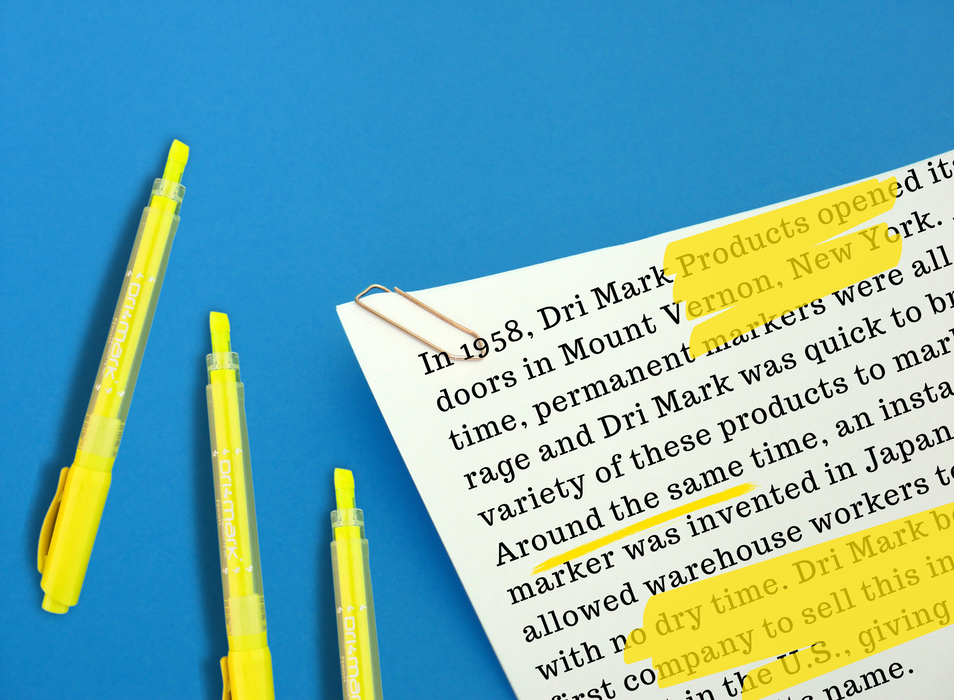 In 1958, Dri Mark Products opened its
doors in Mount Vernon, New York.
time, permanent markers were all
rage and Dri Mark was quick to
variety of these products to
Around the same time, an
marker was invented in Japan
allowed warehouse workers
with no dry time. Dri Mark
first company to sell this in
in the U.S., giving
name.
dri mark
dri mark
dri mark